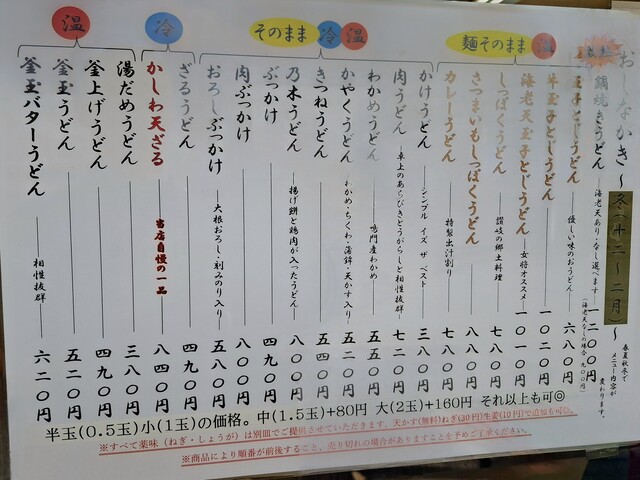 おしなかき〜冬(十二〜二月)〜
春夏秋冬で
メニュー内容が
変わります。
鍋焼きうどん―海老天あり・なし選べます―一二〇〇円
(海老天なしの場合 九〇〇円)
玉子とじうどん―優しい味のおうどん―六八〇円
牛玉子とじうどん―一〇二〇円
海老天玉子とじうどん―女将オススメ―一〇一〇円
しっぽくうどん―讃岐の郷土料理―七八〇円
さつまいもしっぽくうどん―八八〇円
カレーうどん―特製出汁割り―七八〇円
麺そのまま 温
かけうどん―シンプル イズ ザ ベスト―三八〇円
肉うどん―卓上のあらびきとうがらしと相性抜群―七二〇円
わかめうどん―鳴門産わかめ―五五〇円
かやくうどん―わかめ・ちくわ・蒲鉾・天かす入り―五二〇円
きつねうどん―五四〇円
乃木うどん―揚げ餅と鶏肉が入ったうどん―八〇〇円
ぶっかけ―四九〇円
肉ぶっかけ―八〇〇円
おろしぶっかけ―大根おろし・刻みのり入り―五八〇円
そのまま 冷 温
ざるうどん―四九〇円
かしわ天ざる 当店自慢の一品 八四〇円
冷
湯だめうどん―三八〇円
釜上げうどん―四九〇円
釜玉うどん―五二〇円
釜玉バターうどん―相性抜群―六二〇円
温
半玉(0.5玉)小(1玉)の価格。中(1.5玉)+80円 大(2玉)+160円 それ以上も可◎
※すべて薬味(ねぎ・しょうが)は別皿でご提供させていただきます。天かす(無料)ねぎ(30円)生姜(10円)で追加も可◎。
※商品により順番が前後すること、売り切れの場合がありますことを予めご了承ください。